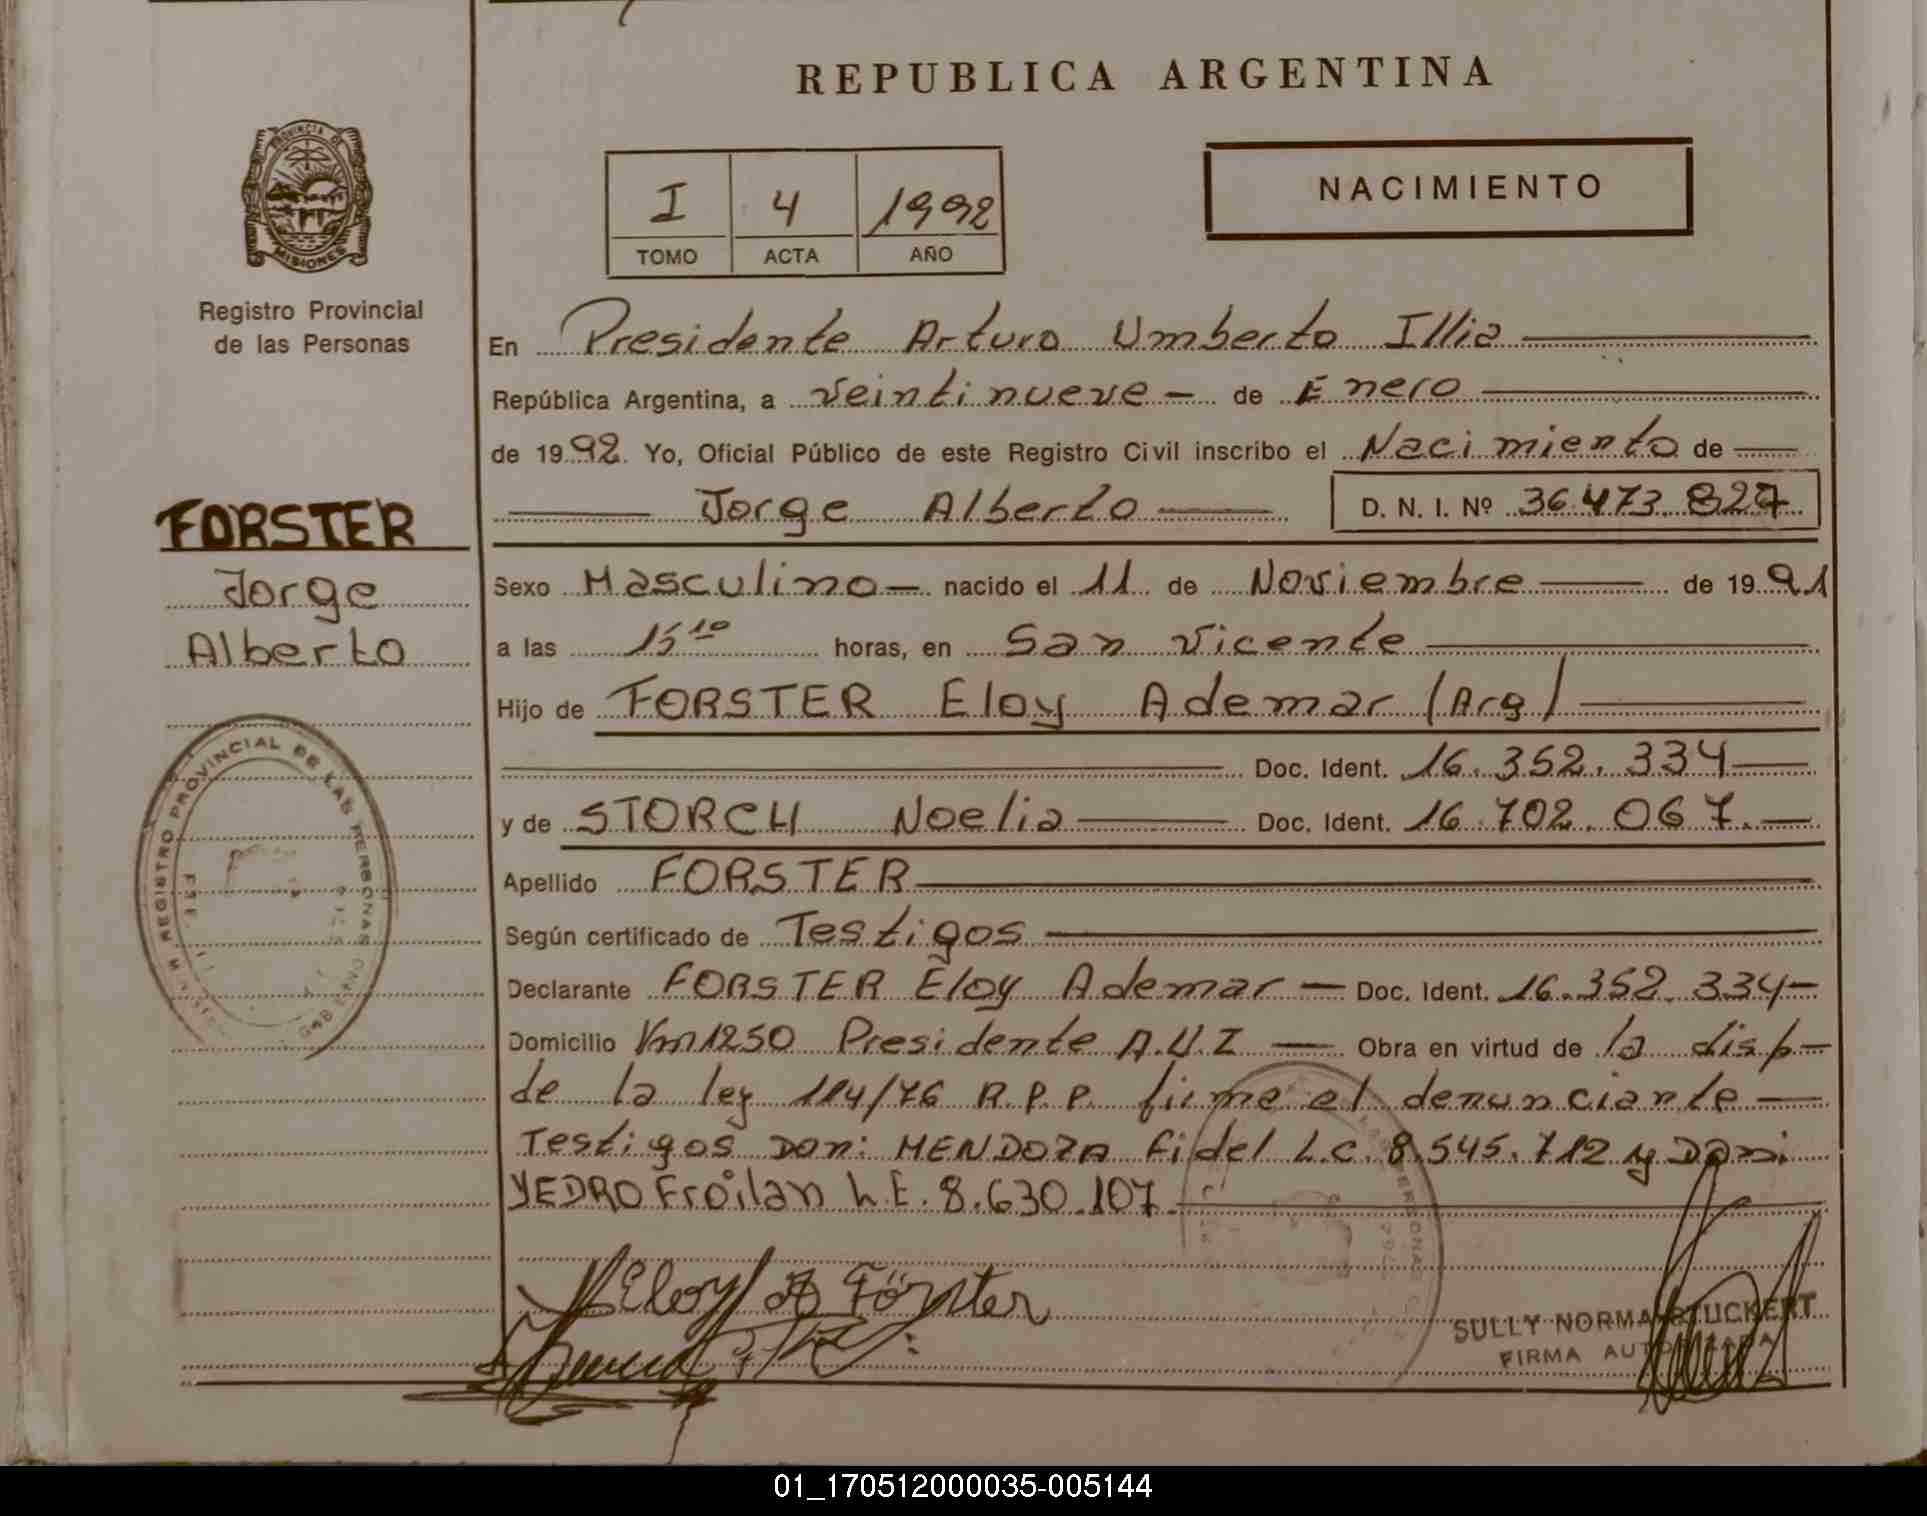 REPUBLICA ARGENTINA
PROVINCIA DE
MISIONES
Registro Provincial
de las Personas
I 4 1992
TOMO ACTA AÑO
NACIMIENTO
En Presidente Arturo Umberto Illia
República Argentina, a veintinueve - de Enero
de 1992. Yo, Oficial Público de este Registro Civil inscribo el Nacimiento de
Jorge Alberto D. N. I. Nº 36.473.827
FORSTER
Jorge
Alberto
Sexo Masculino - nacido el 11 de Noviembre de 1991
a las 15 10 horas, en San Vicente
Hijo de FORSTER Eloy Ademar (Arg)
Doc. Ident. 16.352.334
y de STORCH Noelia Doc. Ident. 16.702.067.
Apellido FORSTER
Según certificado de Testigos
Declarante FORSTER Eloy Ademar - Doc. Ident. 16.352.334-
Domicilio Km 1250 Presidente A.U.I - Obra en virtud de la disp-
de la ley 114/76 R.P.P. firme el denunciante
Testigos Don: MENDOZA Fidel L.C. 8.545.712 y Don:
YEDRO Froilan L.E. 8.630.107.
REGISTRO PROVINCIAL DE LAS PERSONAS
Eloy A Förster
SULLY NORMA STUCKERT
FIRMA AUTORIZADA
01_170512000035-005144